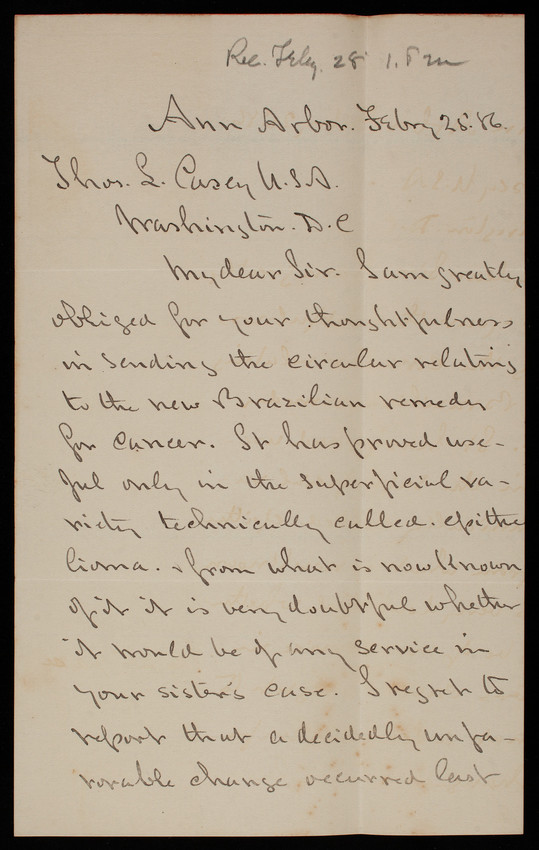 Rec. Feby. 28 1. P m
Ann Arbor. Febry 25. 86.
Thos. L. Casey U.S.A.
Washington. D. C
My dear Sir. I am greatly
obliged for your thoughtfulness
in sending the circular relating
to the new Brazilian remedy
for cancer. It has proved use-
ful only in the superficial va-
riety technically called. epithe
lioma. & from what is now known
of it it is very doubtful whether
it would be of any service in
your sister's case. I regret to
report that a decidedly unfa-
vorable change occurred last